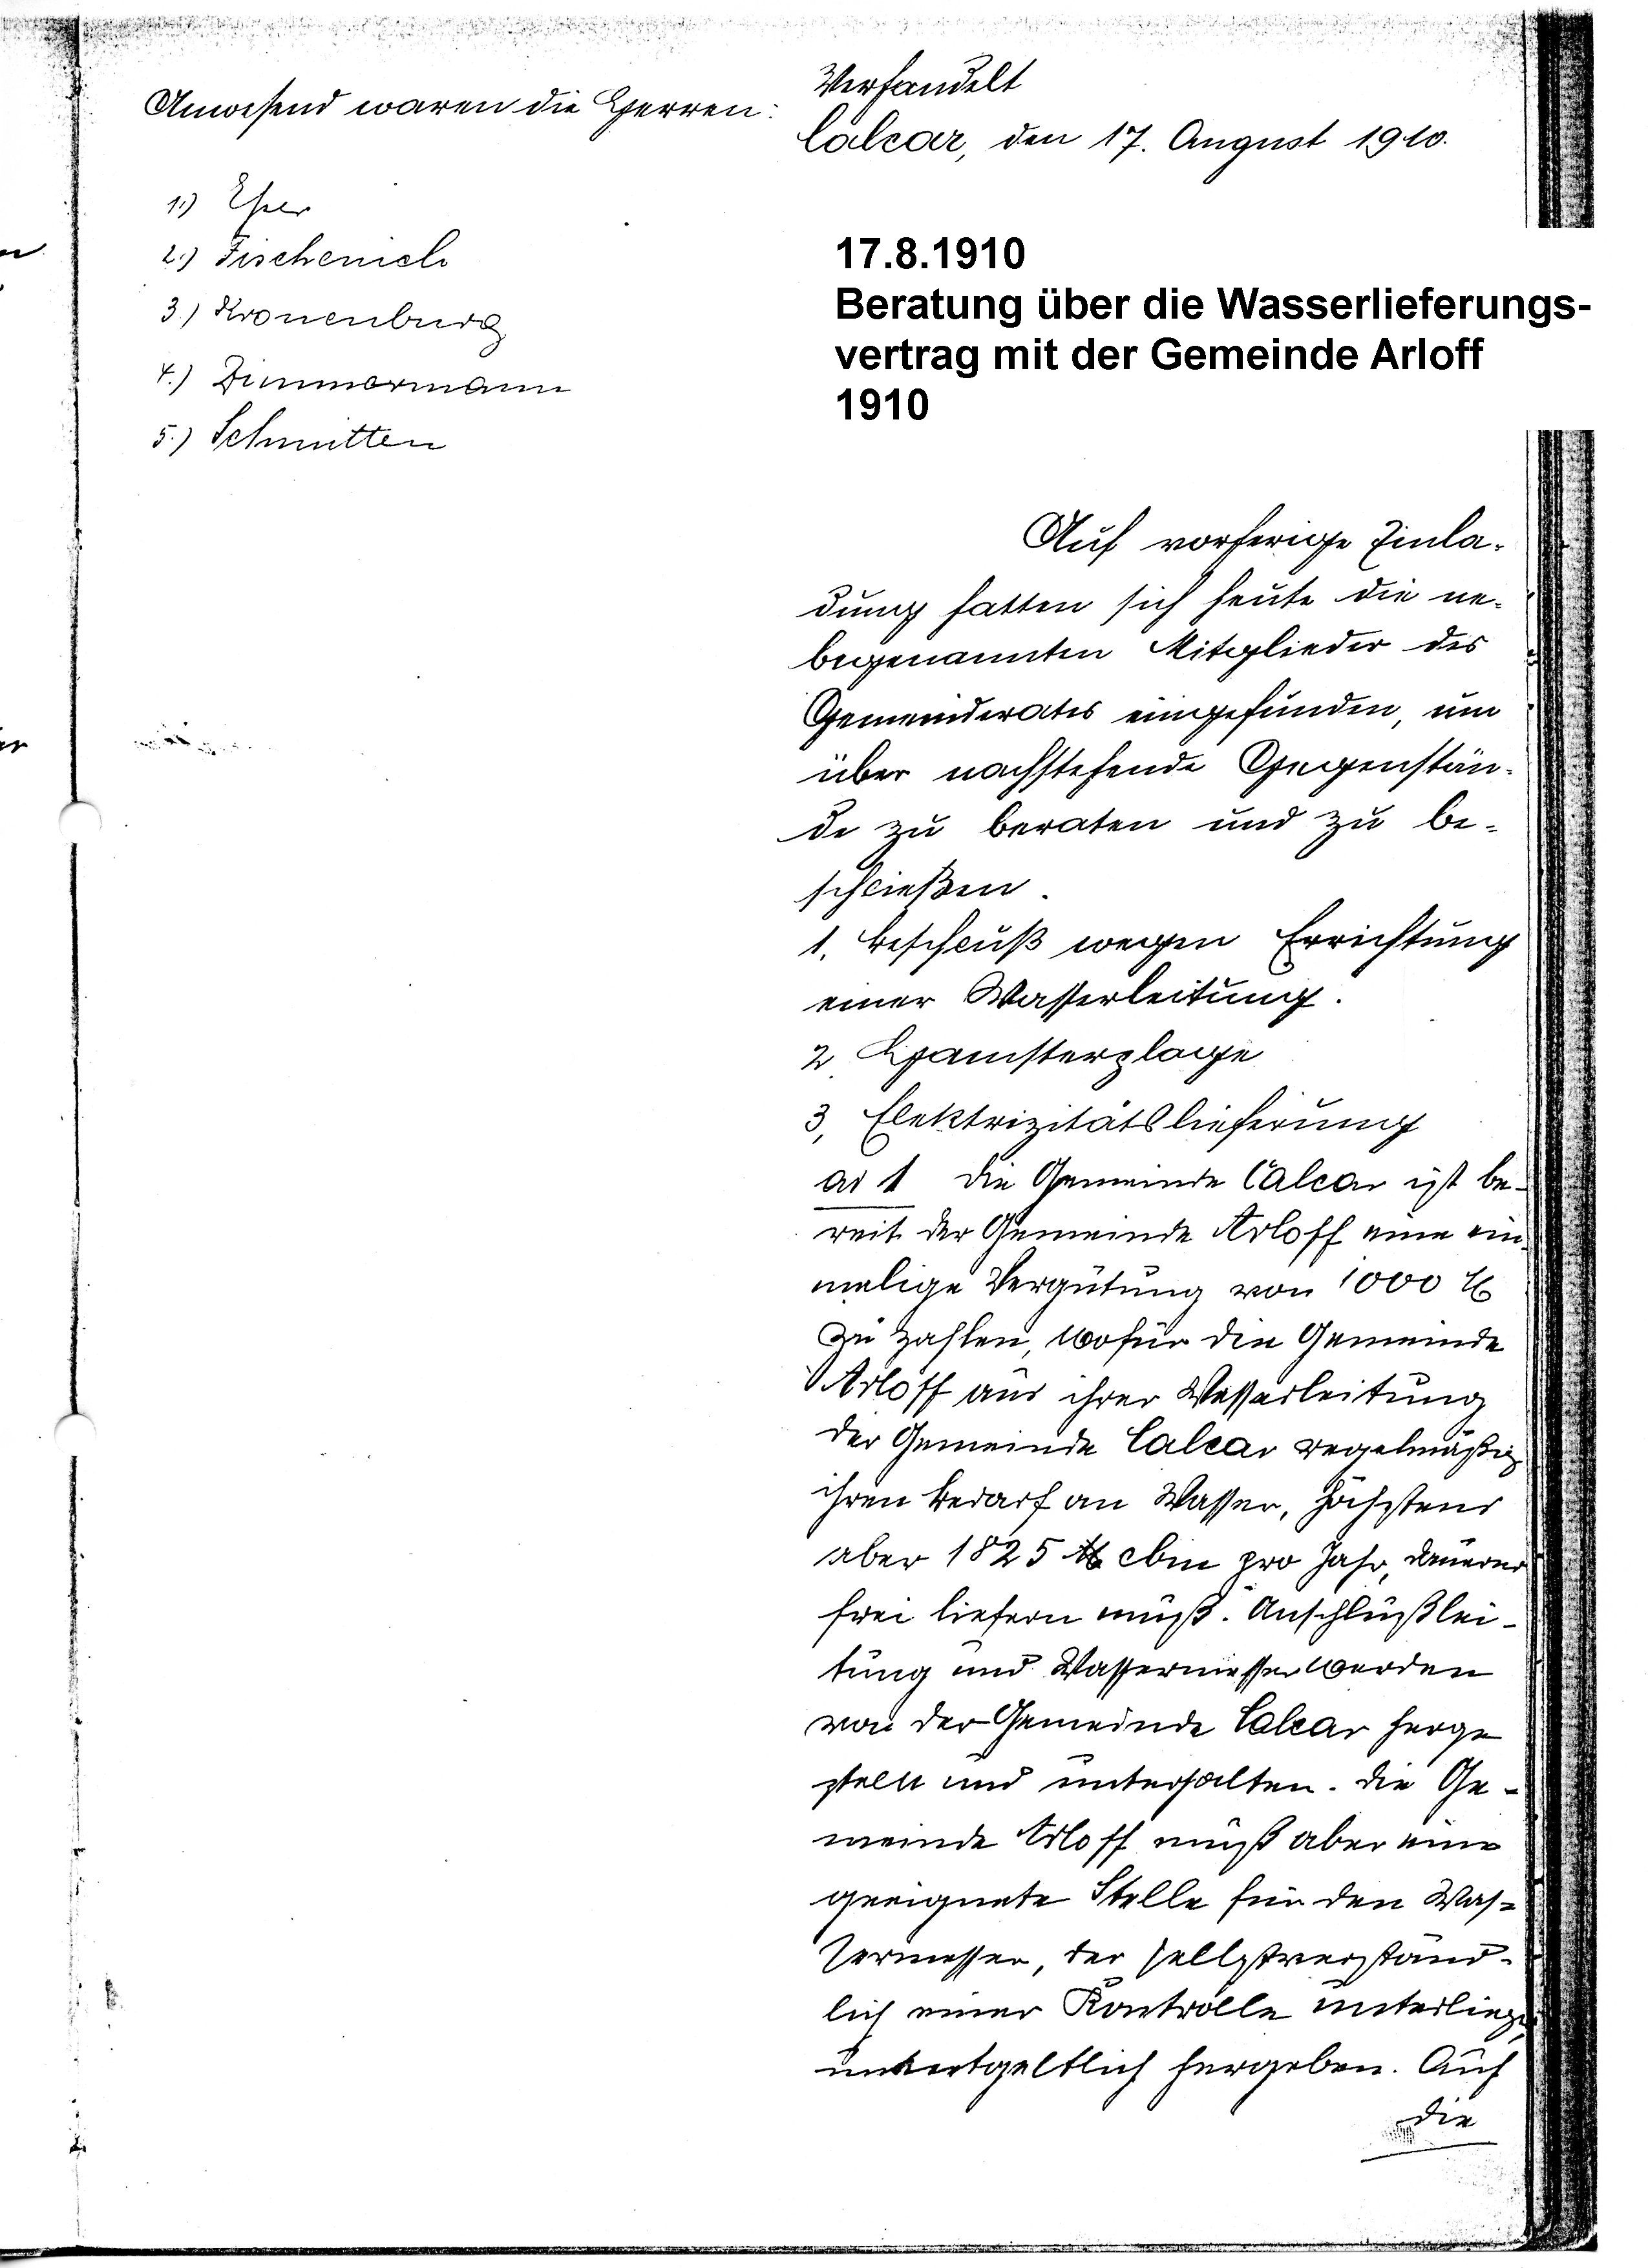 Anwesend waren die Herren:
1.) Esser
2.) Fischenich
3.) Kronenburg
4.) Zimmermann
5.) Schmitten
Verhandelt
Calcar, den 17. August 1910.
17.8.1910
Beratung über die Wasserlieferungs-
vertrag mit der Gemeinde Arloff
1910
Auf vorherige Einla-
dung hatten sich heute die ne-
begenannten Mitglieder des
Gemeinderates eingefunden, um
über nachstehende Gegenstän-
de zu beraten und zu be-
schließen.
1. Beschluß wegen Errichtung
einer Wasserleitung.
2. Hamsterplage
3, Elektrizitätslieferung
ad 1 die Gemeinde Calcar ist be-
reit der Gemeinde Arloff eine ein-
malige Vergütung von 1000 M
zu zahlen, wofür die Gemeinde
Arloff aus ihrer Wasserleitung
der Gemeinde Calcar regelmäßig
ihren Bedarf an Wasser, höchstens
aber 1825 cbm pro Jahr, dauernd
frei liefern muß. Anschlußlei-
tung und Wassermesser werden
von der Gemeinde Calcar herge
stellt und unterhalten. Die Ge-
meinde Arloff muß aber eine
geeignete Stelle für den Was-
sermesser, der selbstverständ-
lich einer Kontrolle unterliegt,
unentgeltlich hergeben. Auf
die